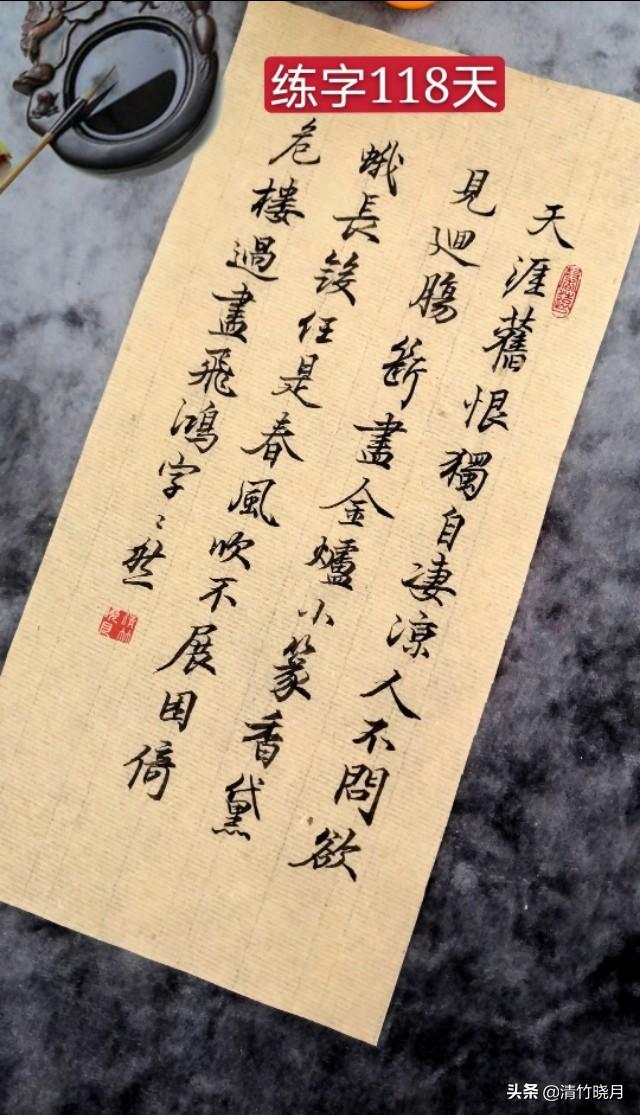 练字118天
天涯舊恨獨自凄凉人不問欲
見廻腸断盡金爐小篆香黛
蛾長斂任是春風吹不展困倚
危樓過盡飛鴻字〻愁
头条 @清竹晓月